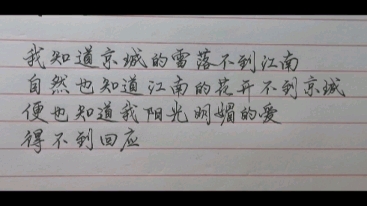 我知道京城的雪落不到江南
自然也知道江南的花开不到京城
便也知道我阳光明媚的爱
得不到回应